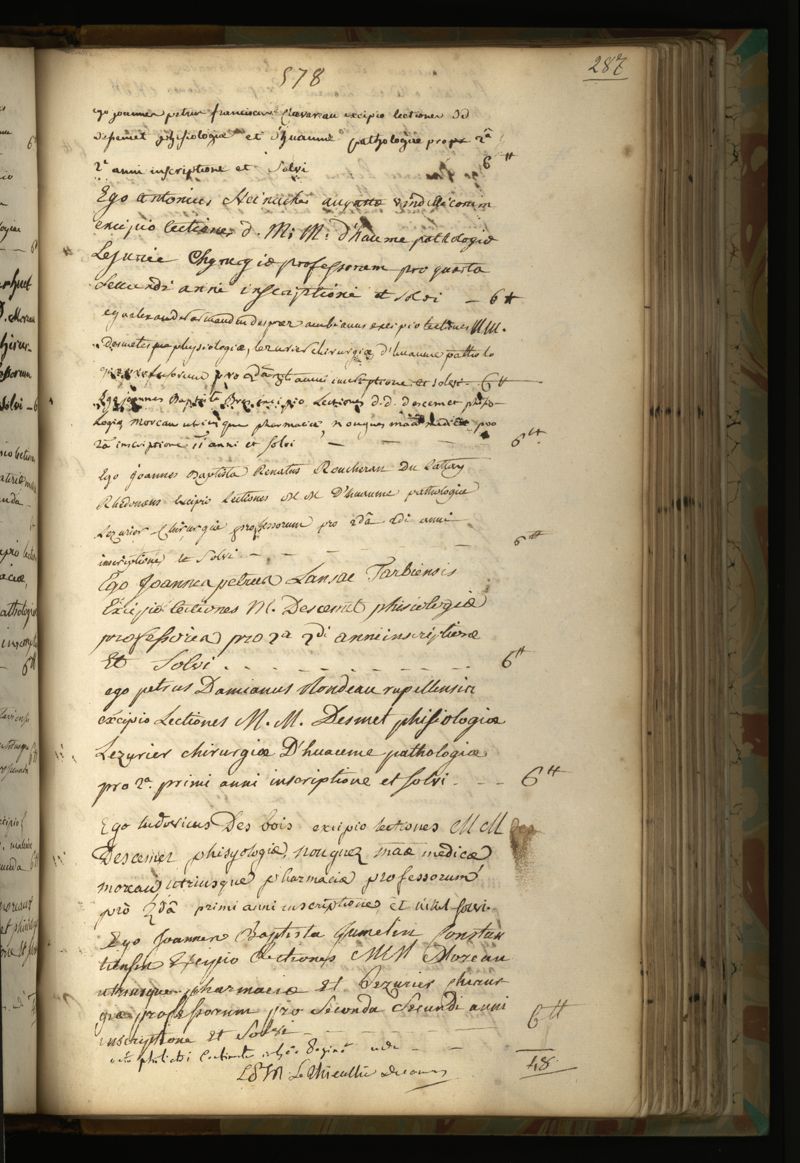 578
287
ego joannes petrus franciscus excipio lectiones dd
desemet phisiologiæ et d'huaume pathologiæ pro 2a
2i anni inscriptione et Solvi 6 ⁋
Ego antonius augustæ vindelicorum
excipio lectiones d. M: M: d'haume pathologiæ
Lesurié Chyrugiæ professorum pro quarta
secundi anni inscriptione et solvi — 6
ego alexander ambianus excipio lectiones MM.
Desmetes physiologiæ, lezurier chirurgiæ, d'huaume patholo
giæ professorum pro 2da anni inscriptione et solvi - 6
Ego joannes Baptista Bres excipio Lectiones d.d. descemet phisio
Logiæ moreau utriusque pharmaciæ nouguez maæ medicæ pro
2a inscriptione 11 anni et solvi 6
Ego joannes Baptista Renatus Roucheran Du Lattay
Rhedonæus Excipio Lectiones M M D'huaume pathologiæ
Lezurier Chirurgiæ professorum pro 2da 2di anni
inscriptione et Solvi 6
Ego Joannes petrus Lansac Tarbiensis
Excipio lectiones M. Descemet phisiologiæ
professoris pro 2a 2di anni inscriptione
Et Solvi 6
ego petrus Damianus Rondeau rupellensis
excipio Lectiones M. M. Desmet phisiologiæ
Lezurier chirurgiæ D'huaume pathologiæ
pro 2a. primi anni inscriptione et solvi - - - 6
Ego ludovicus Des bois excipio lectiones M M des
Descemet phisyologiæ, nouguez maæ medicæ
moreau utriusque pharmaciæ professorum
pro 2da primi anni inscriptione et nihil solvi
Ego Joannes Baptista Jumelin Constan
tiensis Excipio Lectiones MM Moreau
utriusque pharmaciæ Et Lezurier chirur
giæ professorum pro Secunda Secundi anni
inscriptione Et Solvi 6
48
Le Thieullier decanus